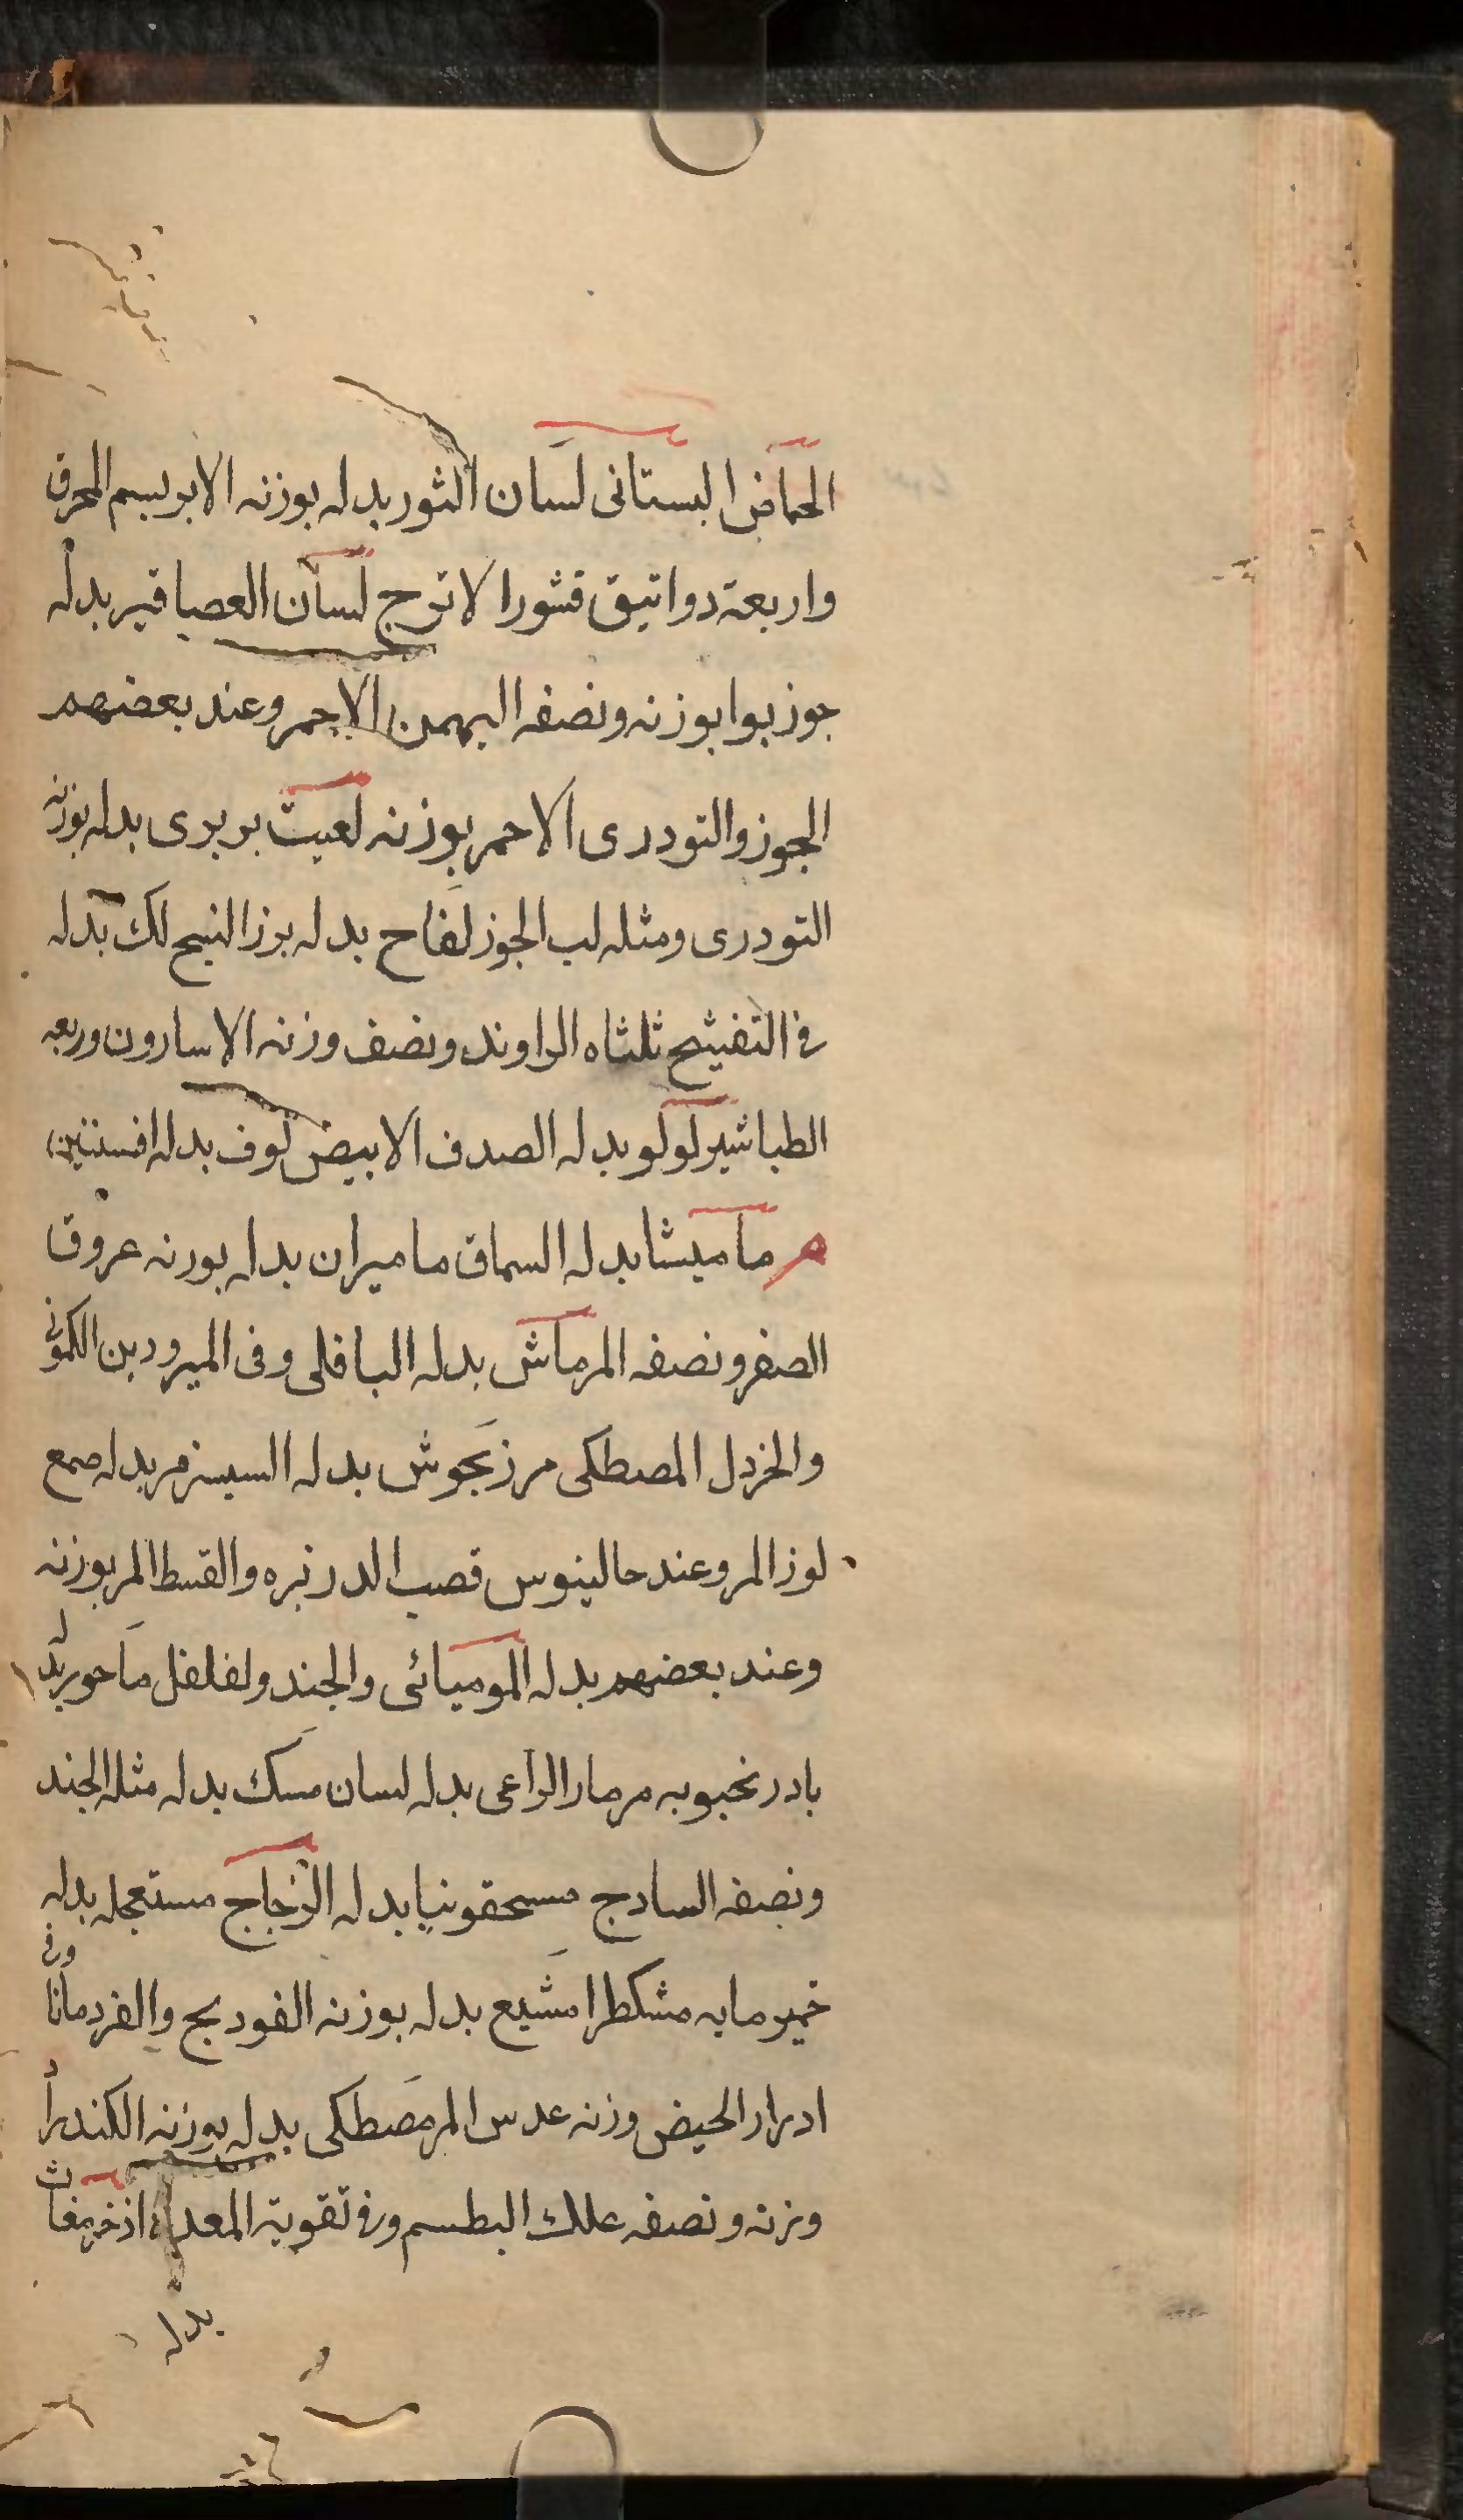 الحماض البستانى لسان الثور بدله بوزنه الابريسم المحرق
واربعة دوانيق قشور الاترج لسان العصافير بدله
جوز بوا بوزنه ونصفه البهمن الاحمر وعند بعضهم
الجوز والتودرى الاحمر بوزنه لعبت بربرى بدله بوزنه
التودرى ومثله لب الجوز لفاح بدله بزر البنج لك بدله
فى التفتيح ثلثاه الراوند ونصف وزنه الاسارون وربعه
الطباشير لولو بدله الصدف الابيض لوف بدله افسنتين
م ماميثا بدله السماق ماميران بدله بوزنه عروق
الصفر ونصفه المر ماش بدله الباقلى وفى المبرودين الكمون
والخردل المصطكى مرزنجوش بدله السيسنبر مر بدله صمغ
لوز المر وعند جالينوس قصب الذريره والقسط المر بوزنه
وعند بعضهم بدله الموميائى والجند ولفلفل ماحور بدله
بادرنجبويه مزمار الراعى بدله لسان مسك بدله مثله الجند
ونصفه السادج مسحقونيا بدله الزجاج مستعجله بدله
خمير مايه مشكطرامشيع بدله بوزنه الفودنج والقردمانا وفى
ادرار الحيض وزنه عدس المر مصطكى بدله بوزنه الكندر او
وزنه ونصفه علك البطم وفى تقوية المعده اذخر مغاث
بدله